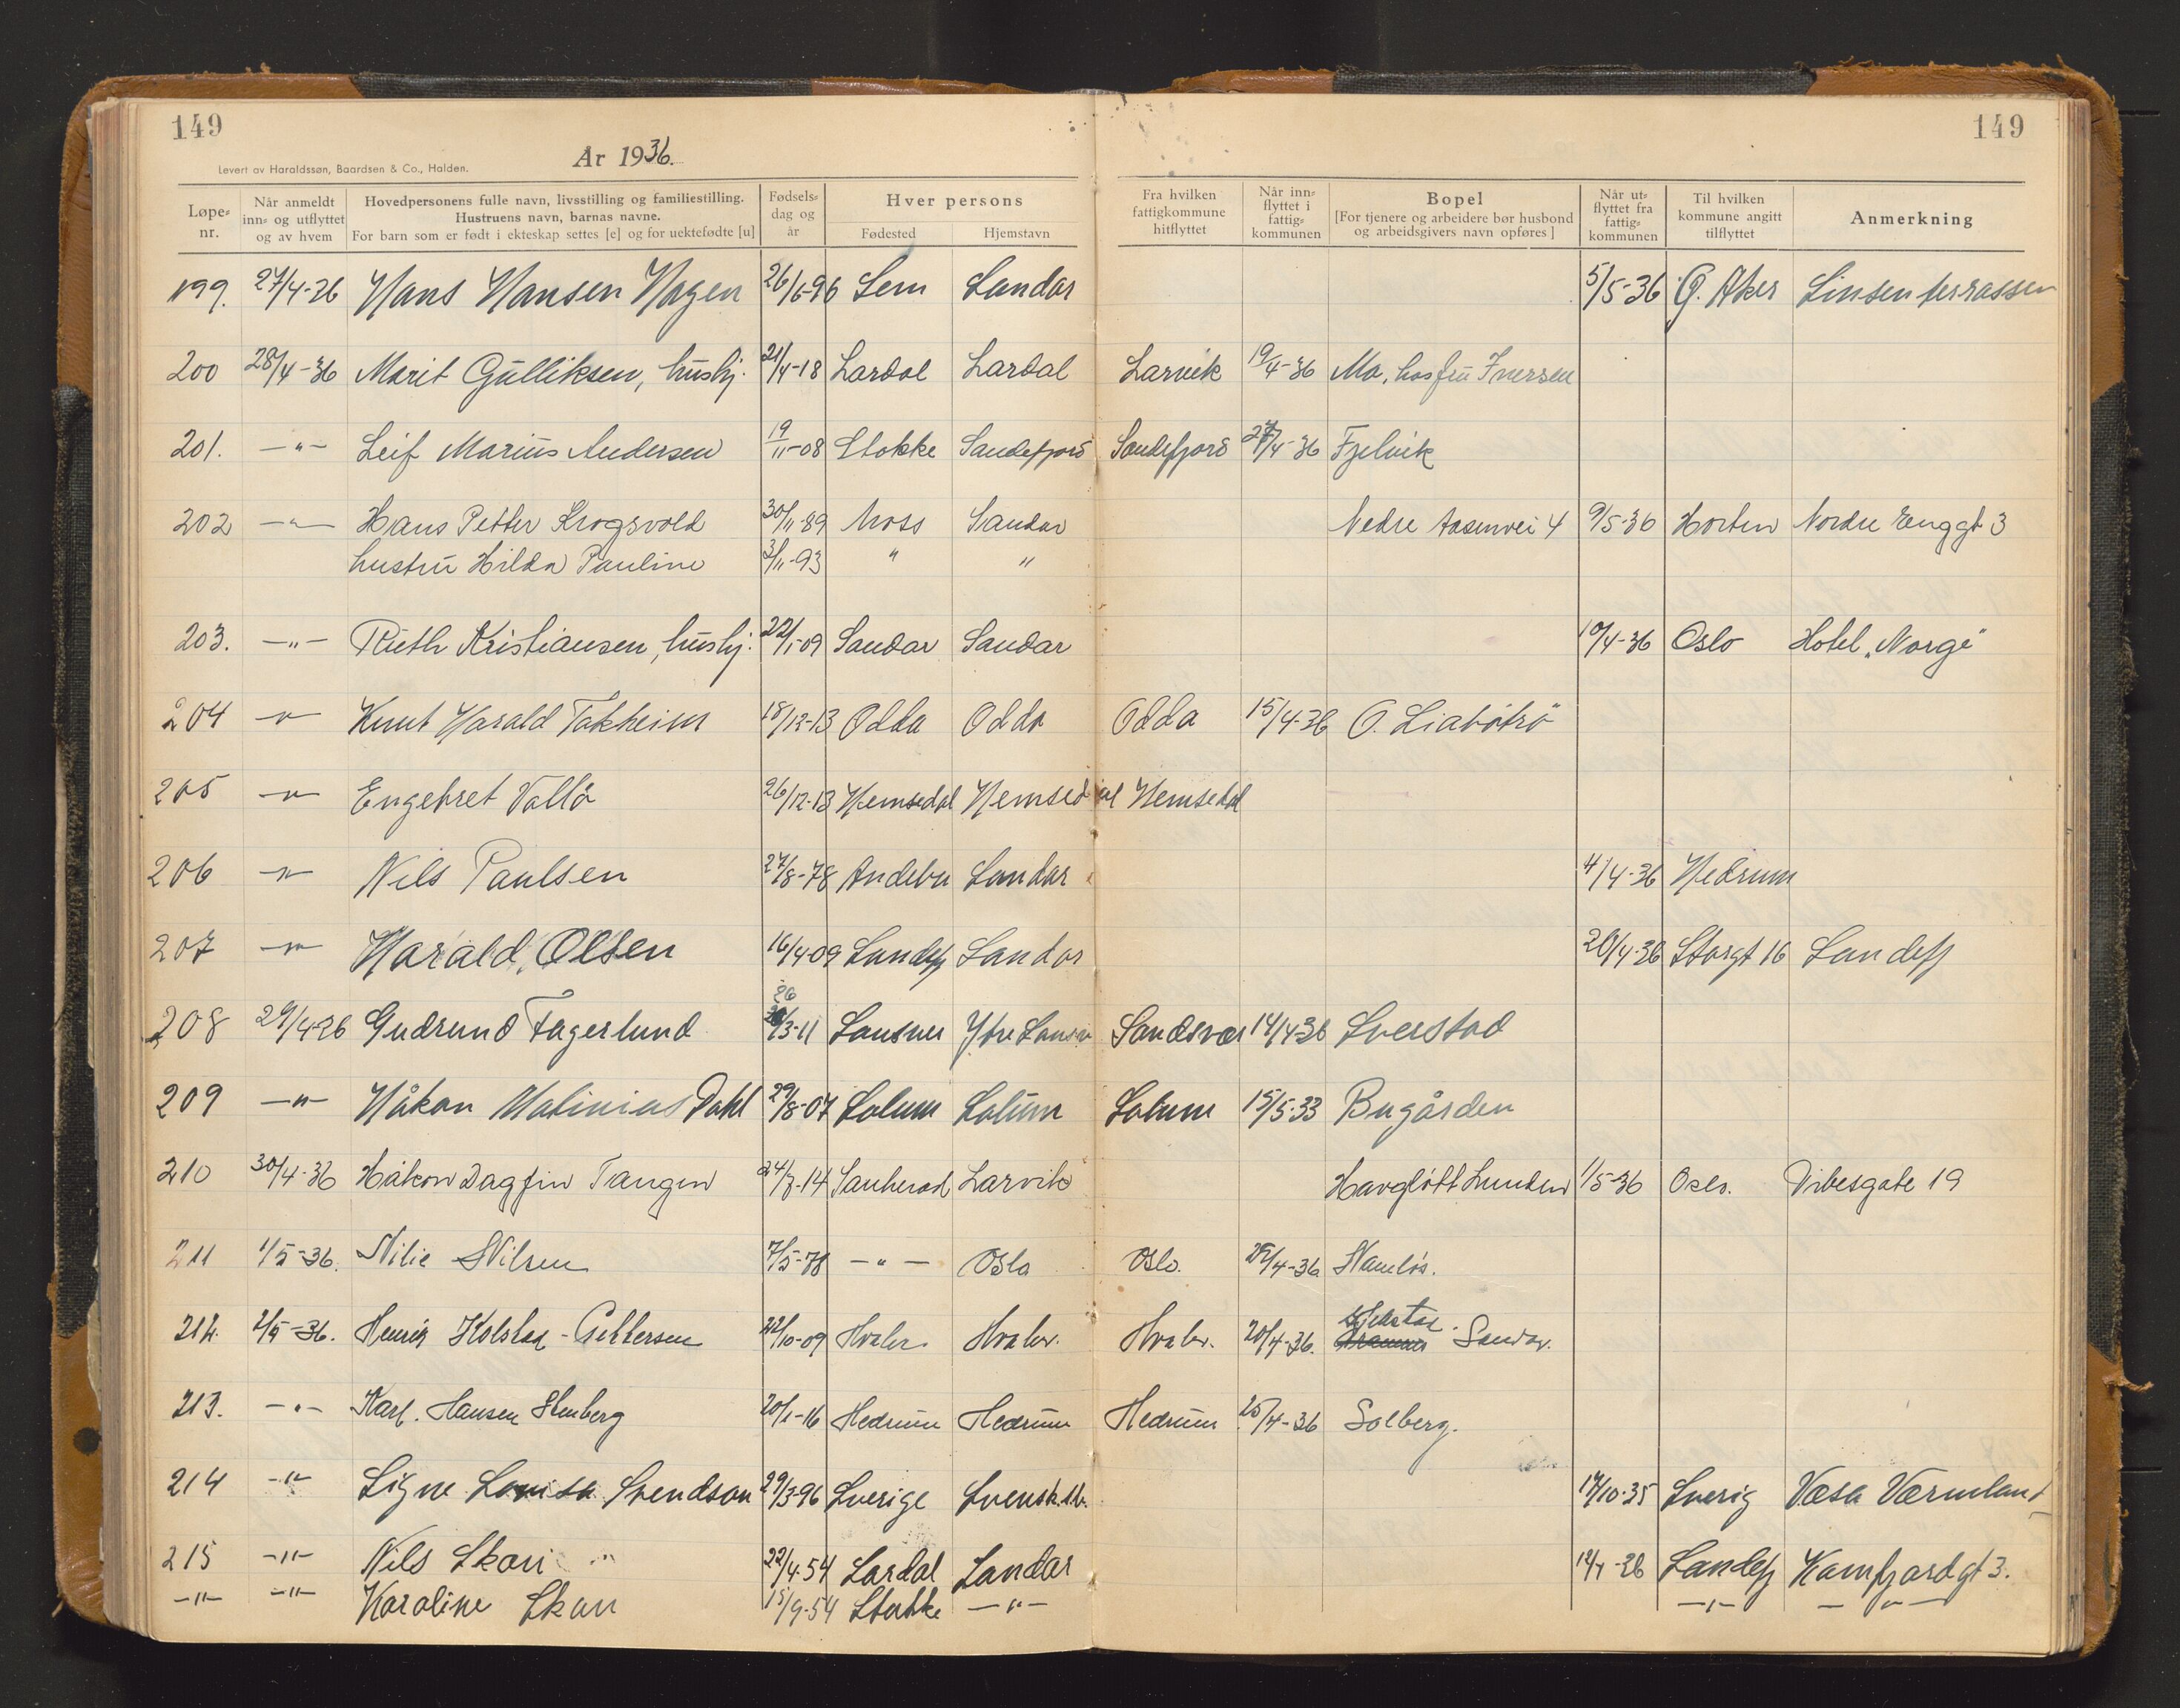 149
149
År 1936.
Levert av Haraldssøn, Baardsen & Co., Halden.
Løpe-nr. Når anmeldt inn- og utflyttet og av hvem Hovedpersonens fulle navn, livsstilling og familiestilling. Hustruens navn, barnas navne. For barn som er født i ekteskap settes [e] og for uektefødte [u] Fødsels-dag og år Hver persons Fødested Hjemstavn Fra hvilken fattigkommune hitflyttet Når inn-flyttet i fattig-kommunen Bopel [For tjenere og arbeidere bør husbond og arbeidsgivers navn opføres] Når ut-flyttet fra fattig-kommunen Til hvilken kommune angitt tilflyttet Anmerkning
199. 27/4-36 Hans Hansen Hagen 26/6-96 Sem Sandar 5/5-36 Ø. Aker Linsenterrassen
200 28/4-36 Marit Gulliksen, hushj. 21/4-18 Lardal Lardal Larvik 19/4-36 Mo, hos fru Iversen
201. -"- Leif Marius Andersen 19/11-08 Stokke Sandefjord Sandefjord 27/4-36 Fjelvik
202 -"- Hans Petter Krogsvold 30/11-89 Moss Sandar Nedre Aasenvei 4 9/5-36 Horten Nordre Enggt 3
hustru Hilda Pauline 3/11-93 " "
203. -"- Ruth Kristiansen, hushj. 22/1-09 Sandar Sandar 10/4-36 Oslo Hotel "Norge"
204 -"- Knut Harald Tokheim 18/12-13 Odda Odda Odda 15/4-36 O. Liabötrö
205 -"- Engebret Vallö 26/12-13 Hemsedal Hemsedal Hemsedal
206 -"- Nils Paulsen 27/8-78 Andebu Sandar 4/4-36 Hedrum
207 -"- Harald Olsen 16/4-09 Sandefj Sandar 20/4-36 Storgt 16 Sandefj
208 29/4-36 Gudrund Fagerlund 26/3-11 Sansvær Ytre Sansv Sandsvær 14/4-36 Sverstad
209 -"- Håkon Malinius Dahl 29/8-07 Solum Solum Solum 15/5-33 Bugården
210 30/4-36 Håkon Dagfin Tangen 24/3-14 Sauherad Larvik Havgløtt Lunden 1/5-36 Oslo. Vibesgate 19
211 1/5-36. Nilie Nilsen 7/5-78 -"- Oslo Oslo. 29/4-36 Namløs.
212. 2/5-36. Henrik Kolstad-Pettersen 22/10-09 Hvaler Hvaler. Hvaler. 20/4-36. Sandar.
213. -"- Karl. Hansen Stenberg 20/1-16 Hedrum Hedrum Hedrum 25/4-36 Solberg.
214 -"- Signe Lovisa Svendson 29/3-96 Sverige Svensk.st. 14/10-35 Sverig Väsa Värmland
215 -"- Nils Skau 22/4-54 Lardal Sandar 12/4-36 Sandefj Kamfjordgt 3.
-"- -"- Karoline Skau 15/9-54 Stokke -"- -"- -"-